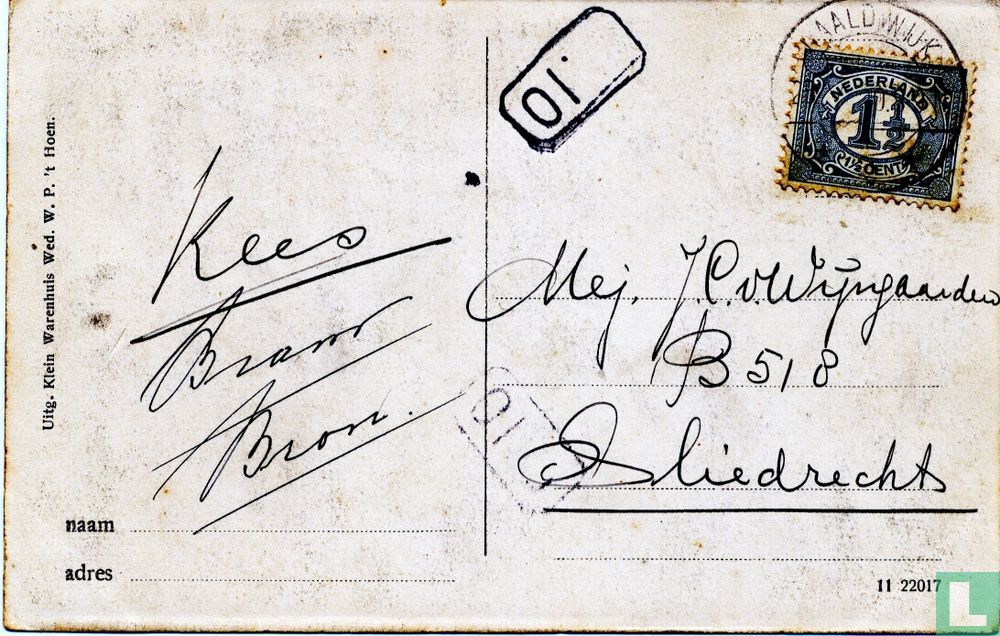 Uitg. Klein Warenhuis Wed. W. P. 't Hoen.
Kees
Bram
Bron.
naam
adres
10.
10
AALDWIJK
NEDERLAND
1 1/2
1½ CENT
Mej. J.C. v. Wijngaarden
B 518
Sliedrecht
11 22017
L